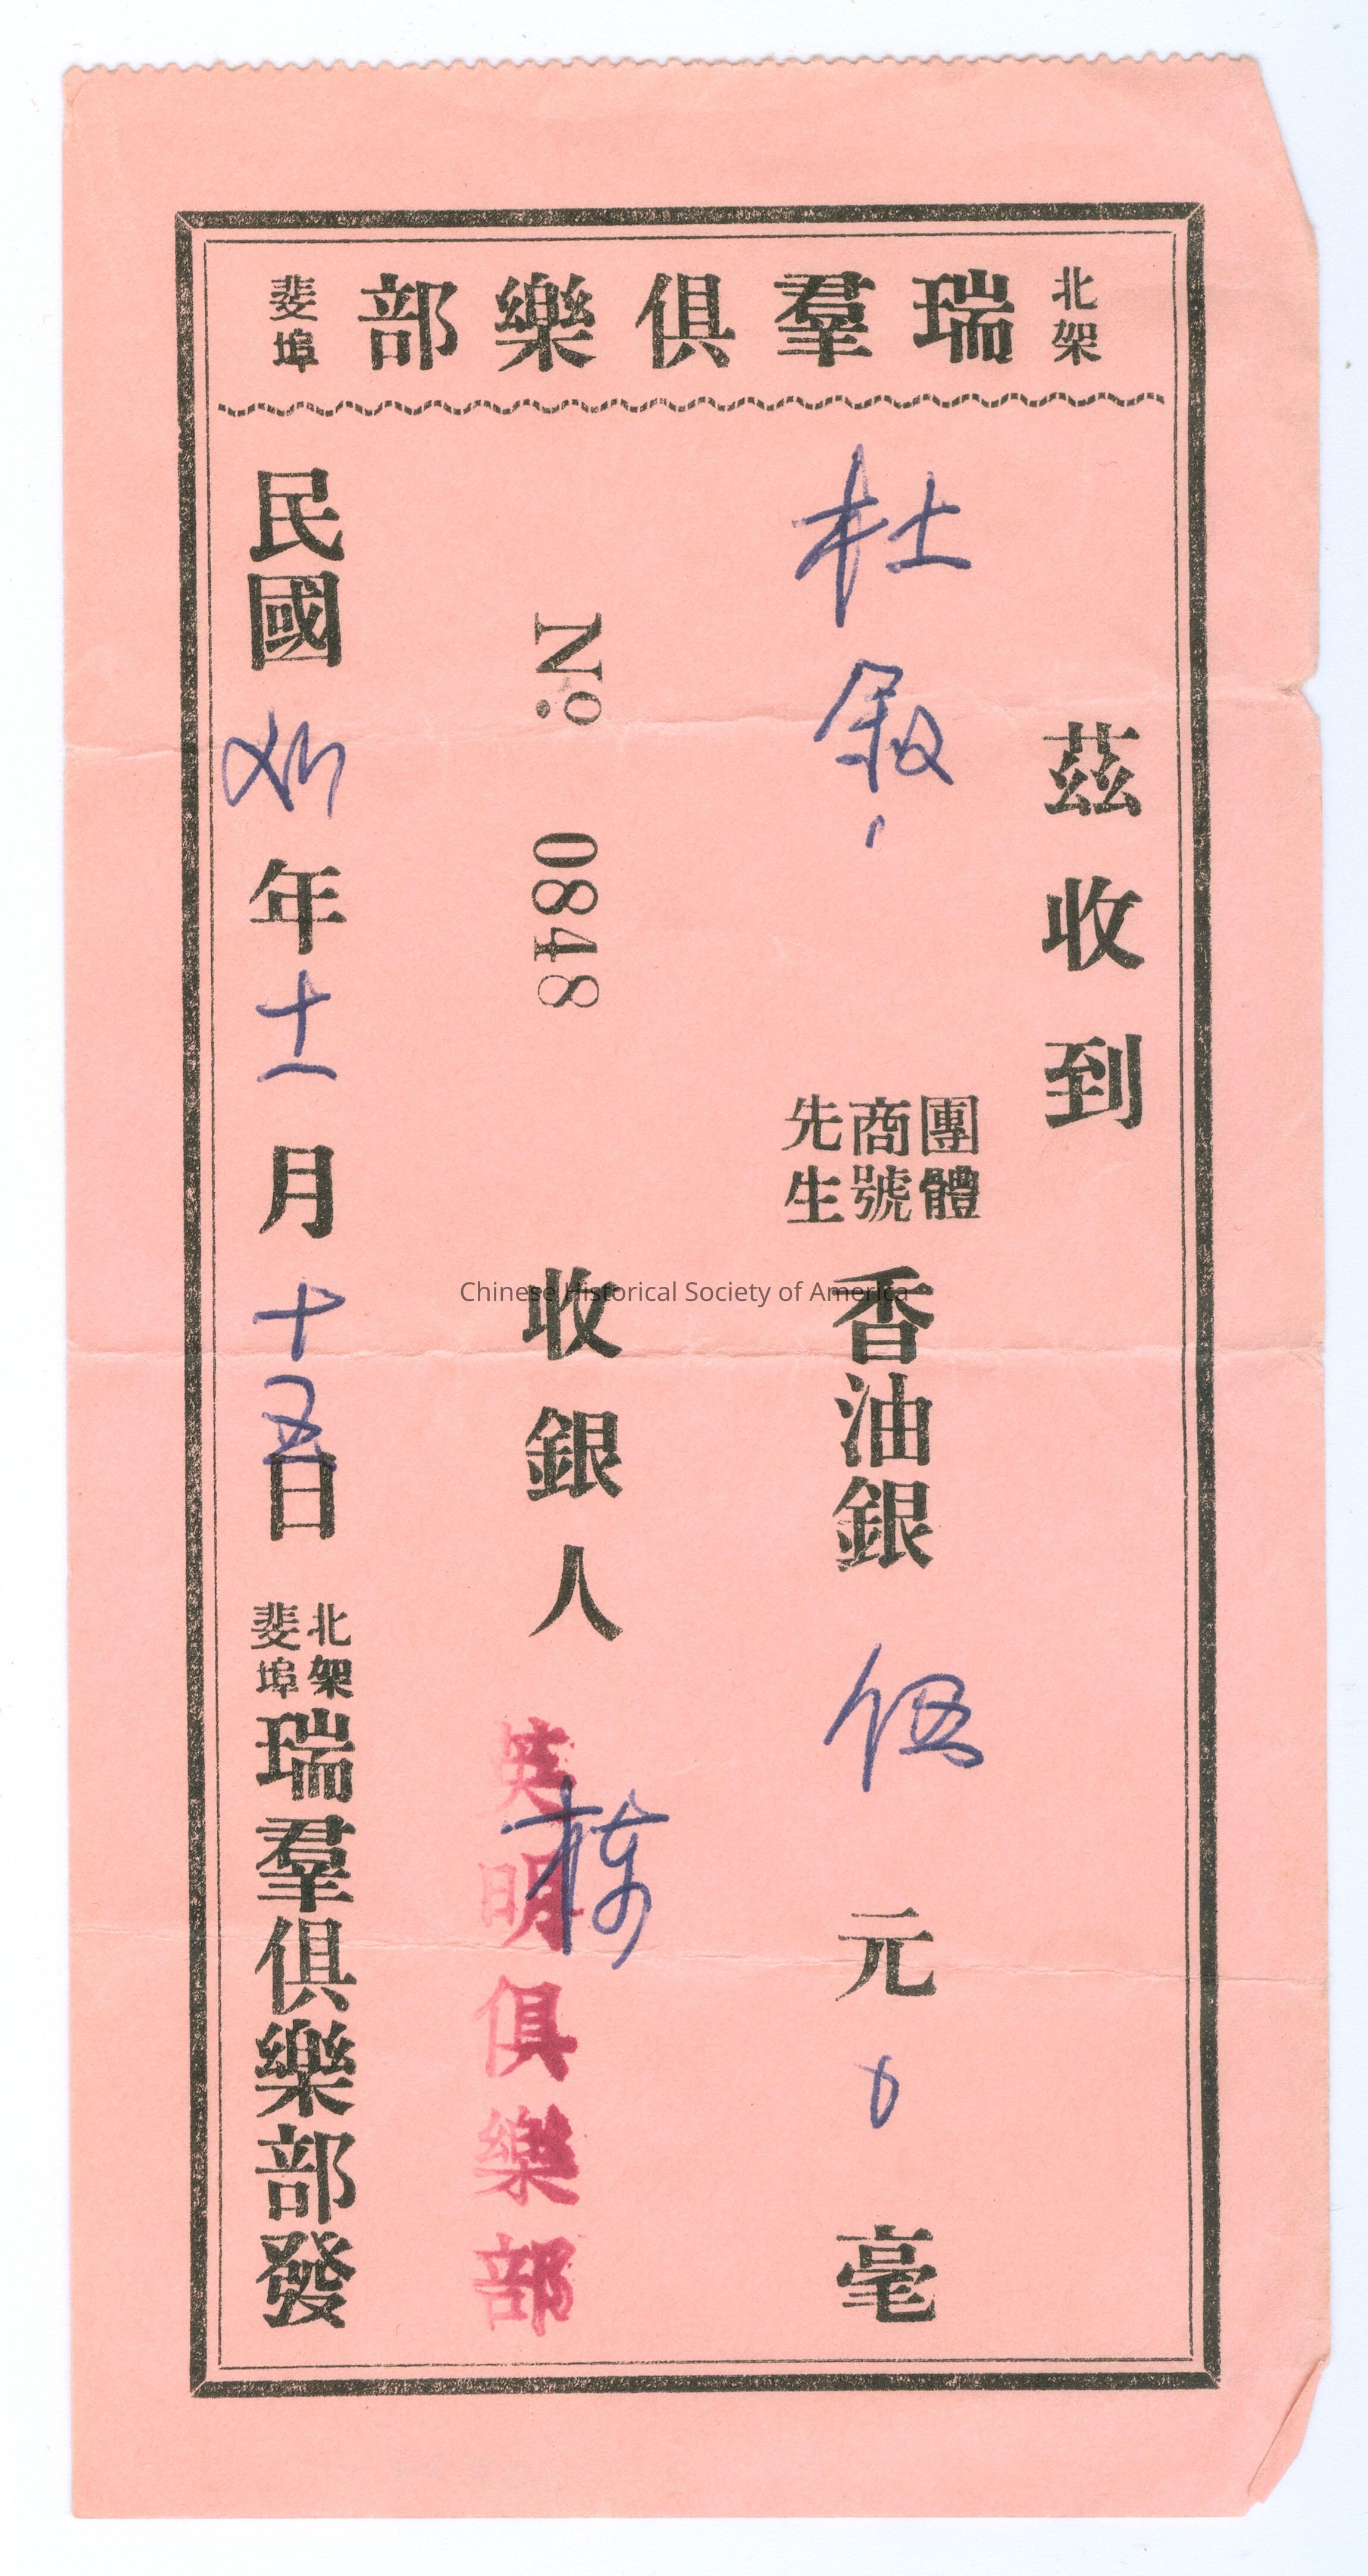 北架 瑞羣俱樂部 斐埠
茲收到
杜 團體 商號 先生 香油銀 伍 元 0 毫
№ 0848 收銀人
英明俱樂部
民國 年 十一 月 十五 日 北架斐埠 瑞羣俱樂部發
Chinese Historical Society of America